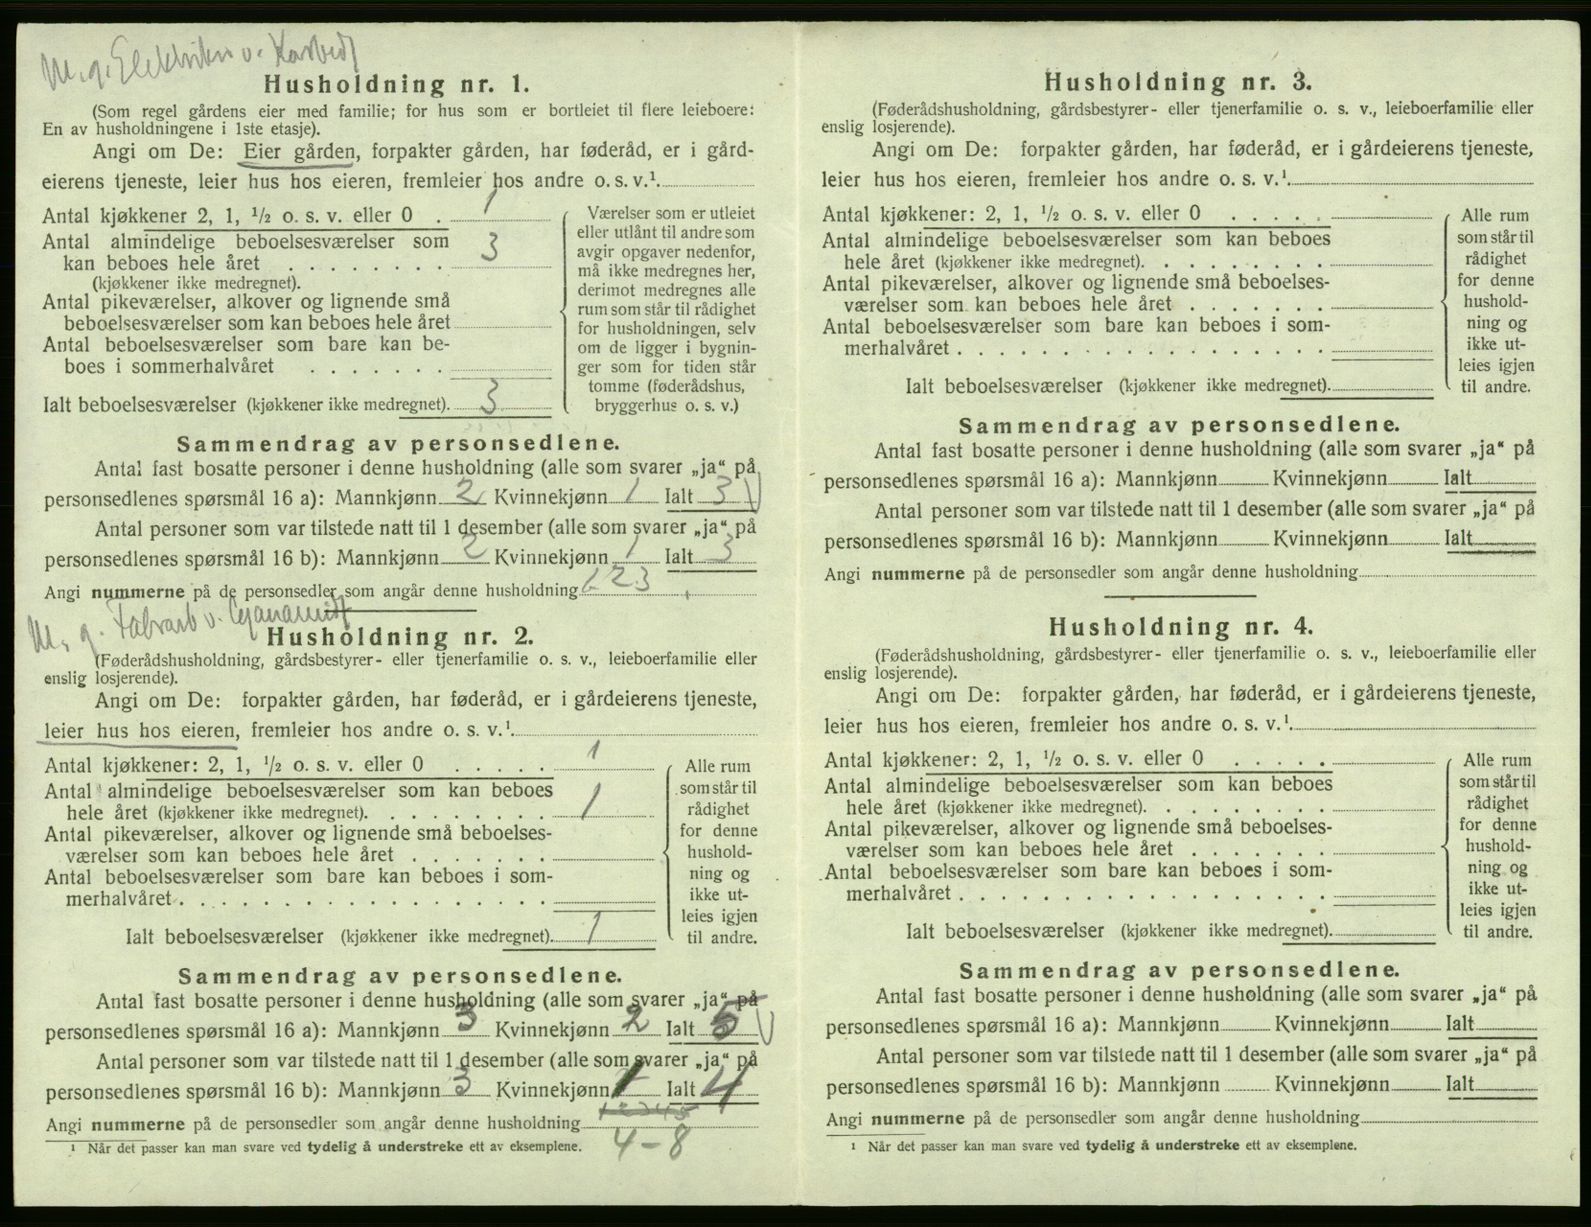 M. g. Elektriker v. Karbidf
Husholdning nr. 1.
(Som regel gårdens eier med familie; for hus som er bortleiet til flere leieboere:
En av husholdningene i 1ste etasje).
Angi om De: Eier gården, forpakter gården, har føderåd, er i gård-
eierens tjeneste, leier hus hos eieren, fremleier hos andre o. s. v.¹
Antal kjøkkener 2, 1, ½ o. s. v. eller 0 . 1
Antal almindelige beboelsesværelser som
kan beboes hele året . . . . . . . . 3
(kjøkkener ikke medregnet).
Antal pikeværelser, alkover og lignende små
beboelsesværelser som kan beboes hele året
Antal beboelsesværelser som bare kan be-
boes i sommerhalvåret . . . . . . .
Ialt beboelsesværelser (kjøkkener ikke medregnet). 3
Værelser som er utleiet
eller utlånt til andre som
avgir opgaver nedenfor,
må ikke medregnes her,
derimot medregnes alle
rum som står til rådighet
for husholdningen, selv
om de ligger i bygnin-
ger som for tiden står
tomme (føderådshus,
bryggerhus o. s. v.)
Sammendrag av personsedlene.
Antal fast bosatte personer i denne husholdning (alle som svarer „ja“ på
personsedlenes spørsmål 16 a): Mannkjønn 2 Kvinnekjønn 1 Ialt 3 V
Antal personer som var tilstede natt til 1 desember (alle som svarer „ja“ på
personsedlenes spørsmål 16 b): Mannkjønn 2 Kvinnekjønn 1 Ialt 3
Angi nummerne på de personsedler som angår denne husholdning 1 2 3
M. g. Fabrarb v. Cyanamidf
Husholdning nr. 2.
(Føderådshusholdning, gårdsbestyrer- eller tjenerfamilie o. s. v., leieboerfamilie eller
enslig losjerende).
Angi om De: forpakter gården, har føderåd, er i gårdeierens tjeneste,
leier hus hos eieren, fremleier hos andre o. s. v.¹
Antal kjøkkener: 2, 1, ½ o. s. v. eller 0 . . . . . 1
Antal almindelige beboelsesværelser som kan beboes
hele året (kjøkkener ikke medregnet). . . . . . . . . 1
Antal pikeværelser, alkover og lignende små beboelses-
værelser som kan beboes hele året . . . . . . .
Antal beboelsesværelser som bare kan beboes i som-
merhalvåret . . . . . . . . . . . . . . . . .
Ialt beboelsesværelser (kjøkkener ikke medregnet). 1
Alle rum
som står til
rådighet
for denne
hushold-
ning og
ikke ut-
leies igjen
til andre.
Sammendrag av personsedlene.
Antal fast bosatte personer i denne husholdning (alle som svarer „ja“ på
personsedlenes spørsmål 16 a): Mannkjønn 3 Kvinnekjønn 2 Ialt 5 V
Antal personer som var tilstede natt til 1 desember (alle som svarer „ja“ på
personsedlenes spørsmål 16 b): Mannkjønn 3 Kvinnekjønn 1 Ialt 4
1 2 3 4 5
Angi nummerne på de personsedler som angår denne husholdning
4 - 8
¹ Når det passer kan man svare ved tydelig å understreke ett av eksemplene.
Husholdning nr. 3.
(Føderådshusholdning, gårdsbestyrer- eller tjenerfamilie o. s. v., leieboerfamilie eller
enslig losjerende).
Angi om De: forpakter gården, har føderåd, er i gårdeierens tjeneste,
leier hus hos eieren, fremleier hos andre o. s. v.¹
Antal kjøkkener: 2, 1, ½ o. s. v. eller 0 . . . . .
Antal almindelige beboelsesværelser som kan beboes
hele året (kjøkkener ikke medregnet). . . . . . . . .
Antal pikeværelser, alkover og lignende små beboelses-
værelser som kan beboes hele året . . . . . . .
Antal beboelsesværelser som bare kan beboes i som-
merhalvåret . . . . . . . . . . . . . . . . .
Ialt beboelsesværelser (kjøkkener ikke medregnet).
Alle rum
som står til
rådighet
for denne
hushold-
ning og
ikke ut-
leies igjen
til andre.
Sammendrag av personsedlene.
Antal fast bosatte personer i denne husholdning (alle som svarer „ja“ på
personsedlenes spørsmål 16 a): Mannkjønn Kvinnekjønn Ialt
Antal personer som var tilstede natt til 1 desember (alle som svarer „ja“ på
personsedlenes spørsmål 16 b): Mannkjønn Kvinnekjønn Ialt
Angi nummerne på de personsedler som angår denne husholdning
Husholdning nr. 4.
(Føderådshusholdning, gårdsbestyrer- eller tjenerfamilie o. s. v., leieboerfamilie eller
enslig losjerende).
Angi om De: forpakter gården, har føderåd, er i gårdeierens tjeneste,
leier hus hos eieren, fremleier hos andre o. s. v.¹
Antal kjøkkener: 2, 1, ½ o. s. v. eller 0 . . . . .
Antal almindelige beboelsesværelser som kan beboes
hele året (kjøkkener ikke medregnet). . . . . . . . .
Antal pikeværelser, alkover og lignende små beboelses-
værelser som kan beboes hele året . . . . . . .
Antal beboelsesværelser som bare kan beboes i som-
merhalvåret . . . . . . . . . . . . . . . . .
Ialt beboelsesværelser (kjøkkener ikke medregnet).
Alle rum
som står til
rådighet
for denne
hushold-
ning og
ikke ut-
leies igjen
til andre.
Sammendrag av personsedlene.
Antal fast bosatte personer i denne husholdning (alle som svarer „ja“ på
personsedlenes spørsmål 16 a): Mannkjønn Kvinnekjønn Ialt
Antal personer som var tilstede natt til 1 desember (alle som svarer „ja“ på
personsedlenes spørsmål 16 b): Mannkjønn Kvinnekjønn Ialt
Angi nummerne på de personsedler som angår denne husholdning
¹ Når det passer kan man svare ved tydelig å understreke ett av eksemplene.